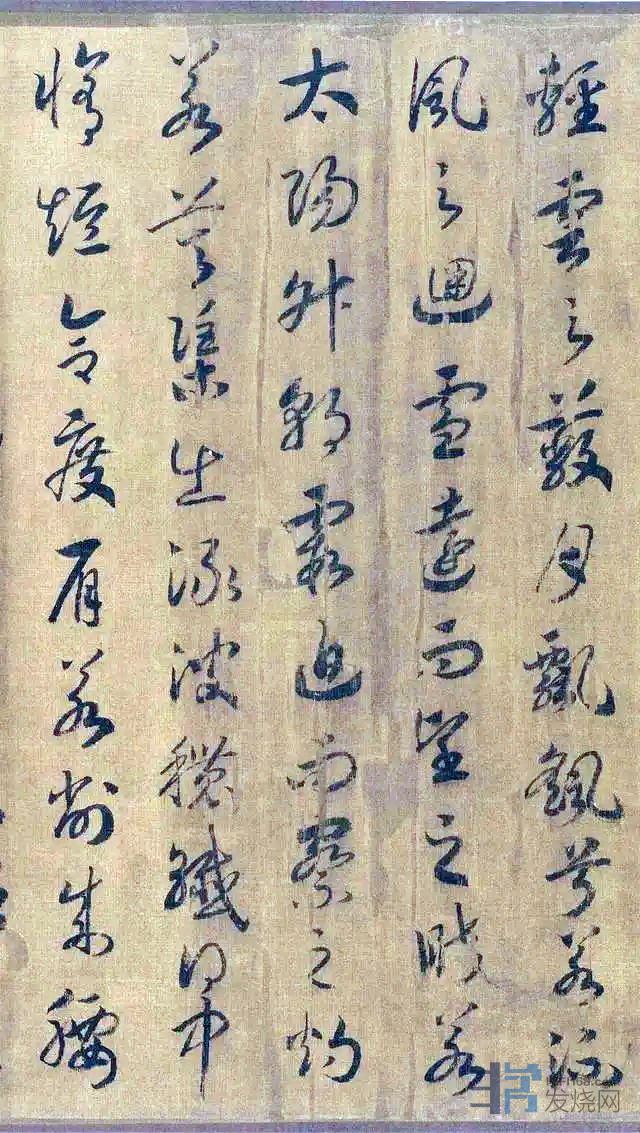 輕雲之蔽月飄飖兮若流
風之迴雪遠而望之皎若
太陽升朝霞迫而察之灼
若芙蕖出淥波穠纖得中
脩短合度肩若削成腰
发烧网